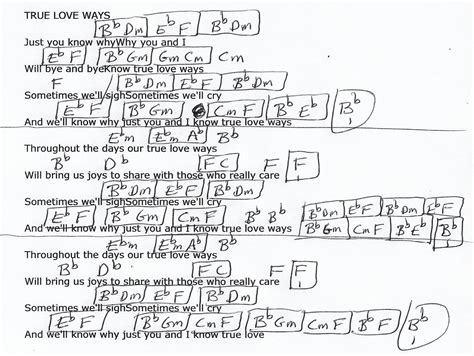 TRUE LOVE WAYS
B♭ Dm E♭ F B♭ Dm
Just you know whyWhy you and I
E♭ F B♭ Gm Gm Cm Cm
Will bye and byeKnow true love ways
F B♭ Dm E♭ F B♭ Dm
Sometimes we'll sighSometimes we'll cry
E♭ F B♭ Gm Cm F B♭ E♭ B♭
And we'll know why just you and I know true love ways
E♭m E♭m A♭ B♭
Throughout the days our true love ways
B♭ D♭ F C F F
Will bring us joys to share with those who really care
B♭ Dm E♭ F B♭ Dm
Sometimes we'll sighSometimes we'll cry
E♭ F B♭ Gm Cm F B♭ B♭ B♭ Dm E♭ F B♭ Dm E♭ F
And we'll know why just you and I know true love ways B♭ Gm Cm F B♭ E♭ B♭
E♭m E♭m A♭ B♭
Throughout the days our true love ways
B♭ D♭ F C F F
Will bring us joys to share with those who really care
B♭ Dm E♭ F B♭ Dm
Sometimes we'll sighSometimes we'll cry
E♭ F B♭ Gm Cm F B♭ Gm Cm F B♭ F B♭
And we'll know why just you and I know true love ways